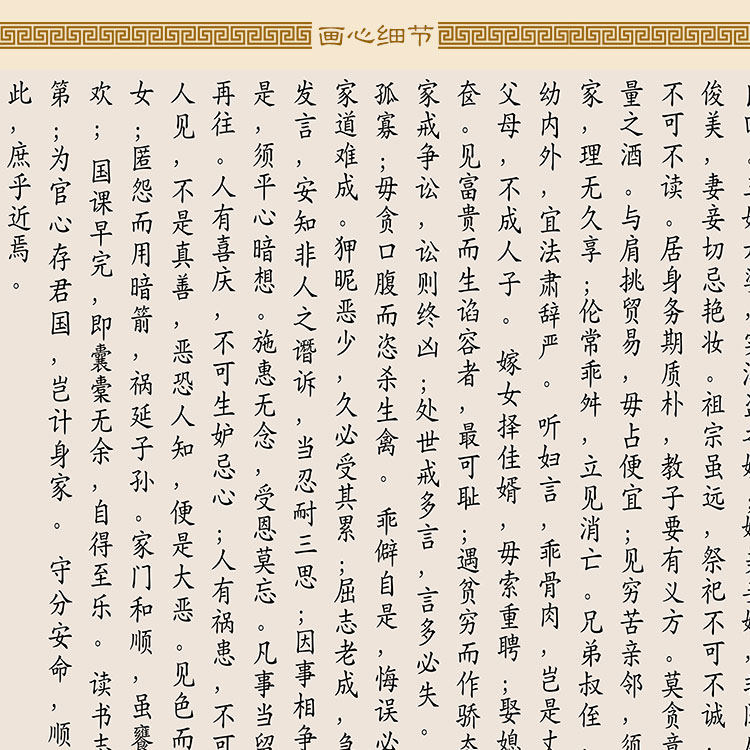 画心细节
俊美，妻妾切忌艳妆。祖宗虽远，祭祀不可不诚
不可不读。居身务期质朴，教子要有义方。莫贪意
量之酒。与肩挑贸易，毋占便宜；见穷苦亲邻，须
家，理无久享；伦常乖舛，立见消亡。兄弟叔侄，
幼内外，宜法肃辞严。听妇言，乖骨肉，岂是丈
父母，不成人子。嫁女择佳婿，毋索重聘；娶媳
奁。见富贵而生谄容者，最可耻；遇贫穷而作骄态
家戒争讼，讼则终凶；处世戒多言，言多必失。
孤寡；毋贪口腹而恣杀生禽。乖僻自是，悔误必
家道难成。狎昵恶少，久必受其累；屈志老成，急
发言，安知非人之谮诉，当忍耐三思；因事相争
是，须平心暗想。施惠无念，受恩莫忘。凡事当留
再往。人有喜庆，不可生妒忌心；人有祸患，不可
人见，不是真善，恶恐人知，便是大恶。见色而
女；匿怨而用暗箭，祸延子孙。家门和顺，虽饔
欢；国课早完，即囊橐无余，自得至乐。读书志
第；为官心存君国，岂计身家。守分安命，顺
此，庶乎近焉。